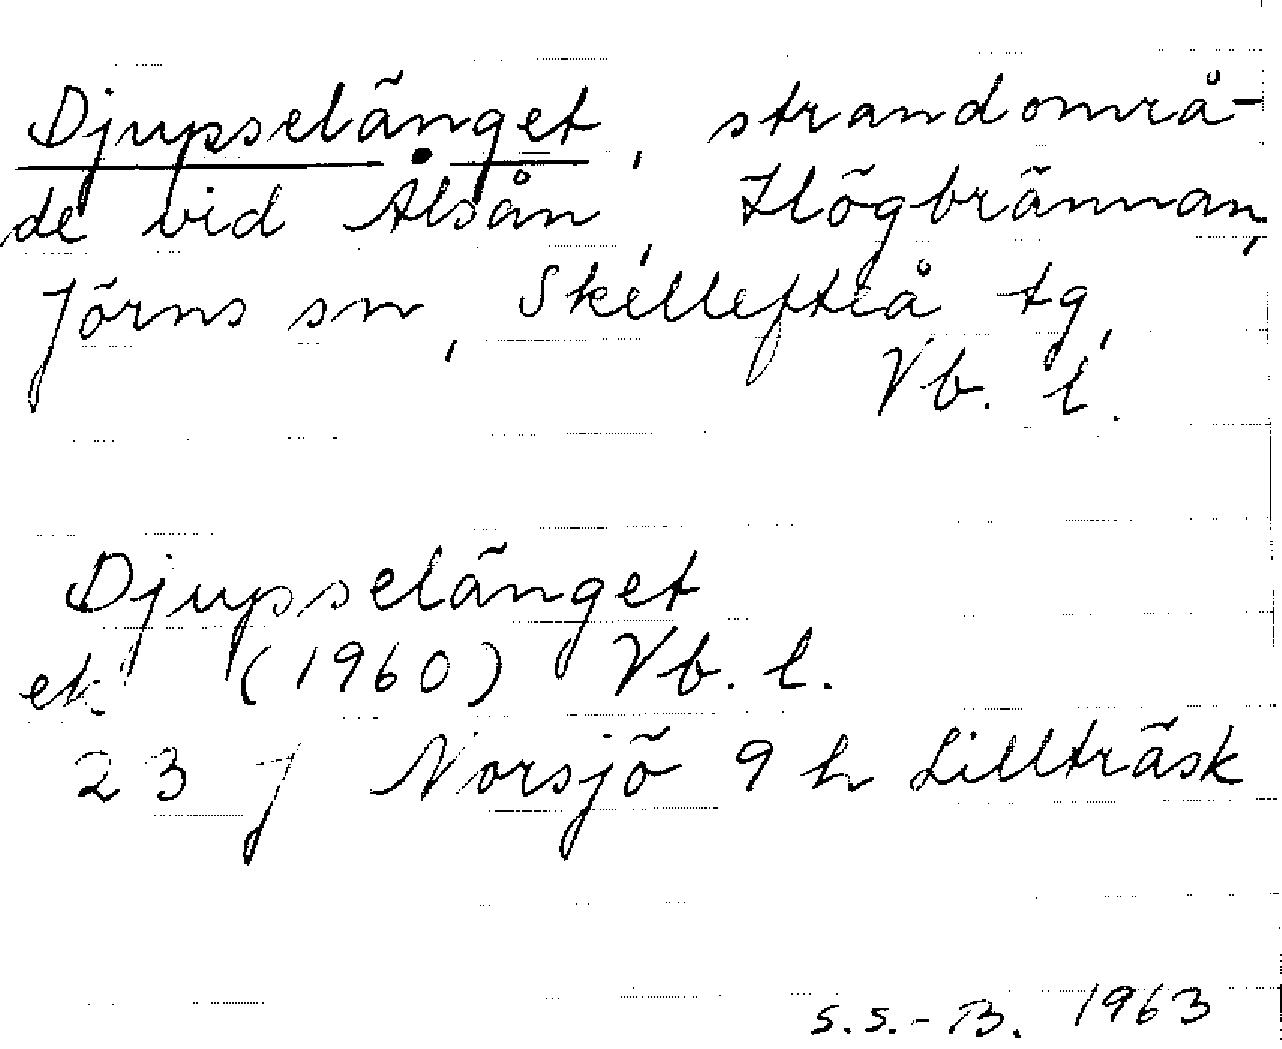 Djupselänget, strandområ-
de vid Ålsån, Högbrännan,
Jörns sn, Skellefteå tg,
Vb. l.
Djupselänget
ek (1960) Vb. l.
23 J Norsjö 9 h Lillträsk
S.S.-B. 1963